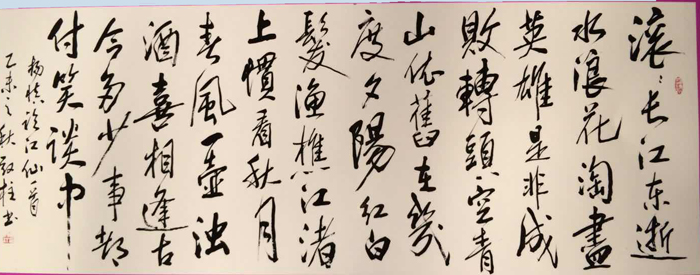 滚〻长江东逝
水浪花淘盡
英雄是非成
敗轉頭空青
山依舊在幾
度夕陽红白
髮渔樵江渚
上慣看秋月
春風一壶浊
酒喜相逢古
今多少事都
付笑谈中
杨慎临江仙一首
乙未之秋书